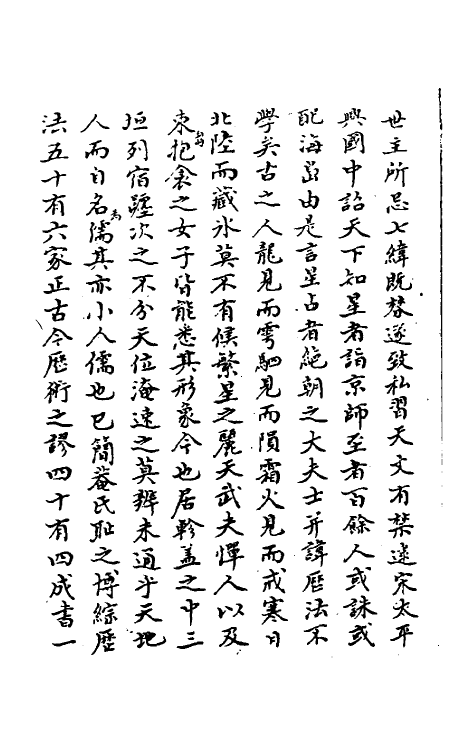 世主所忌七緯既替遂致私習天文有禁迨宋太平
興國中詔天下知星者詣京師至者百餘人或誅或
配海島由是言星占者絶朝之大夫士并諱厯法不
學矣古之人龍見而雩駟見而隕霜火見而戒寒日
北陸而藏氷莫不有候繁星之麗天武夫憚人以及
束芻抱衾之女子皆能悉其形象今也居軫盖之中三
垣列宿躔次之不分天位淹速之莫辨未通乎天地
人而自名為儒其亦小人儒也已簡菴氏恥之博綜厯
法五十有六家正古今厯術之謬四十有四成書一